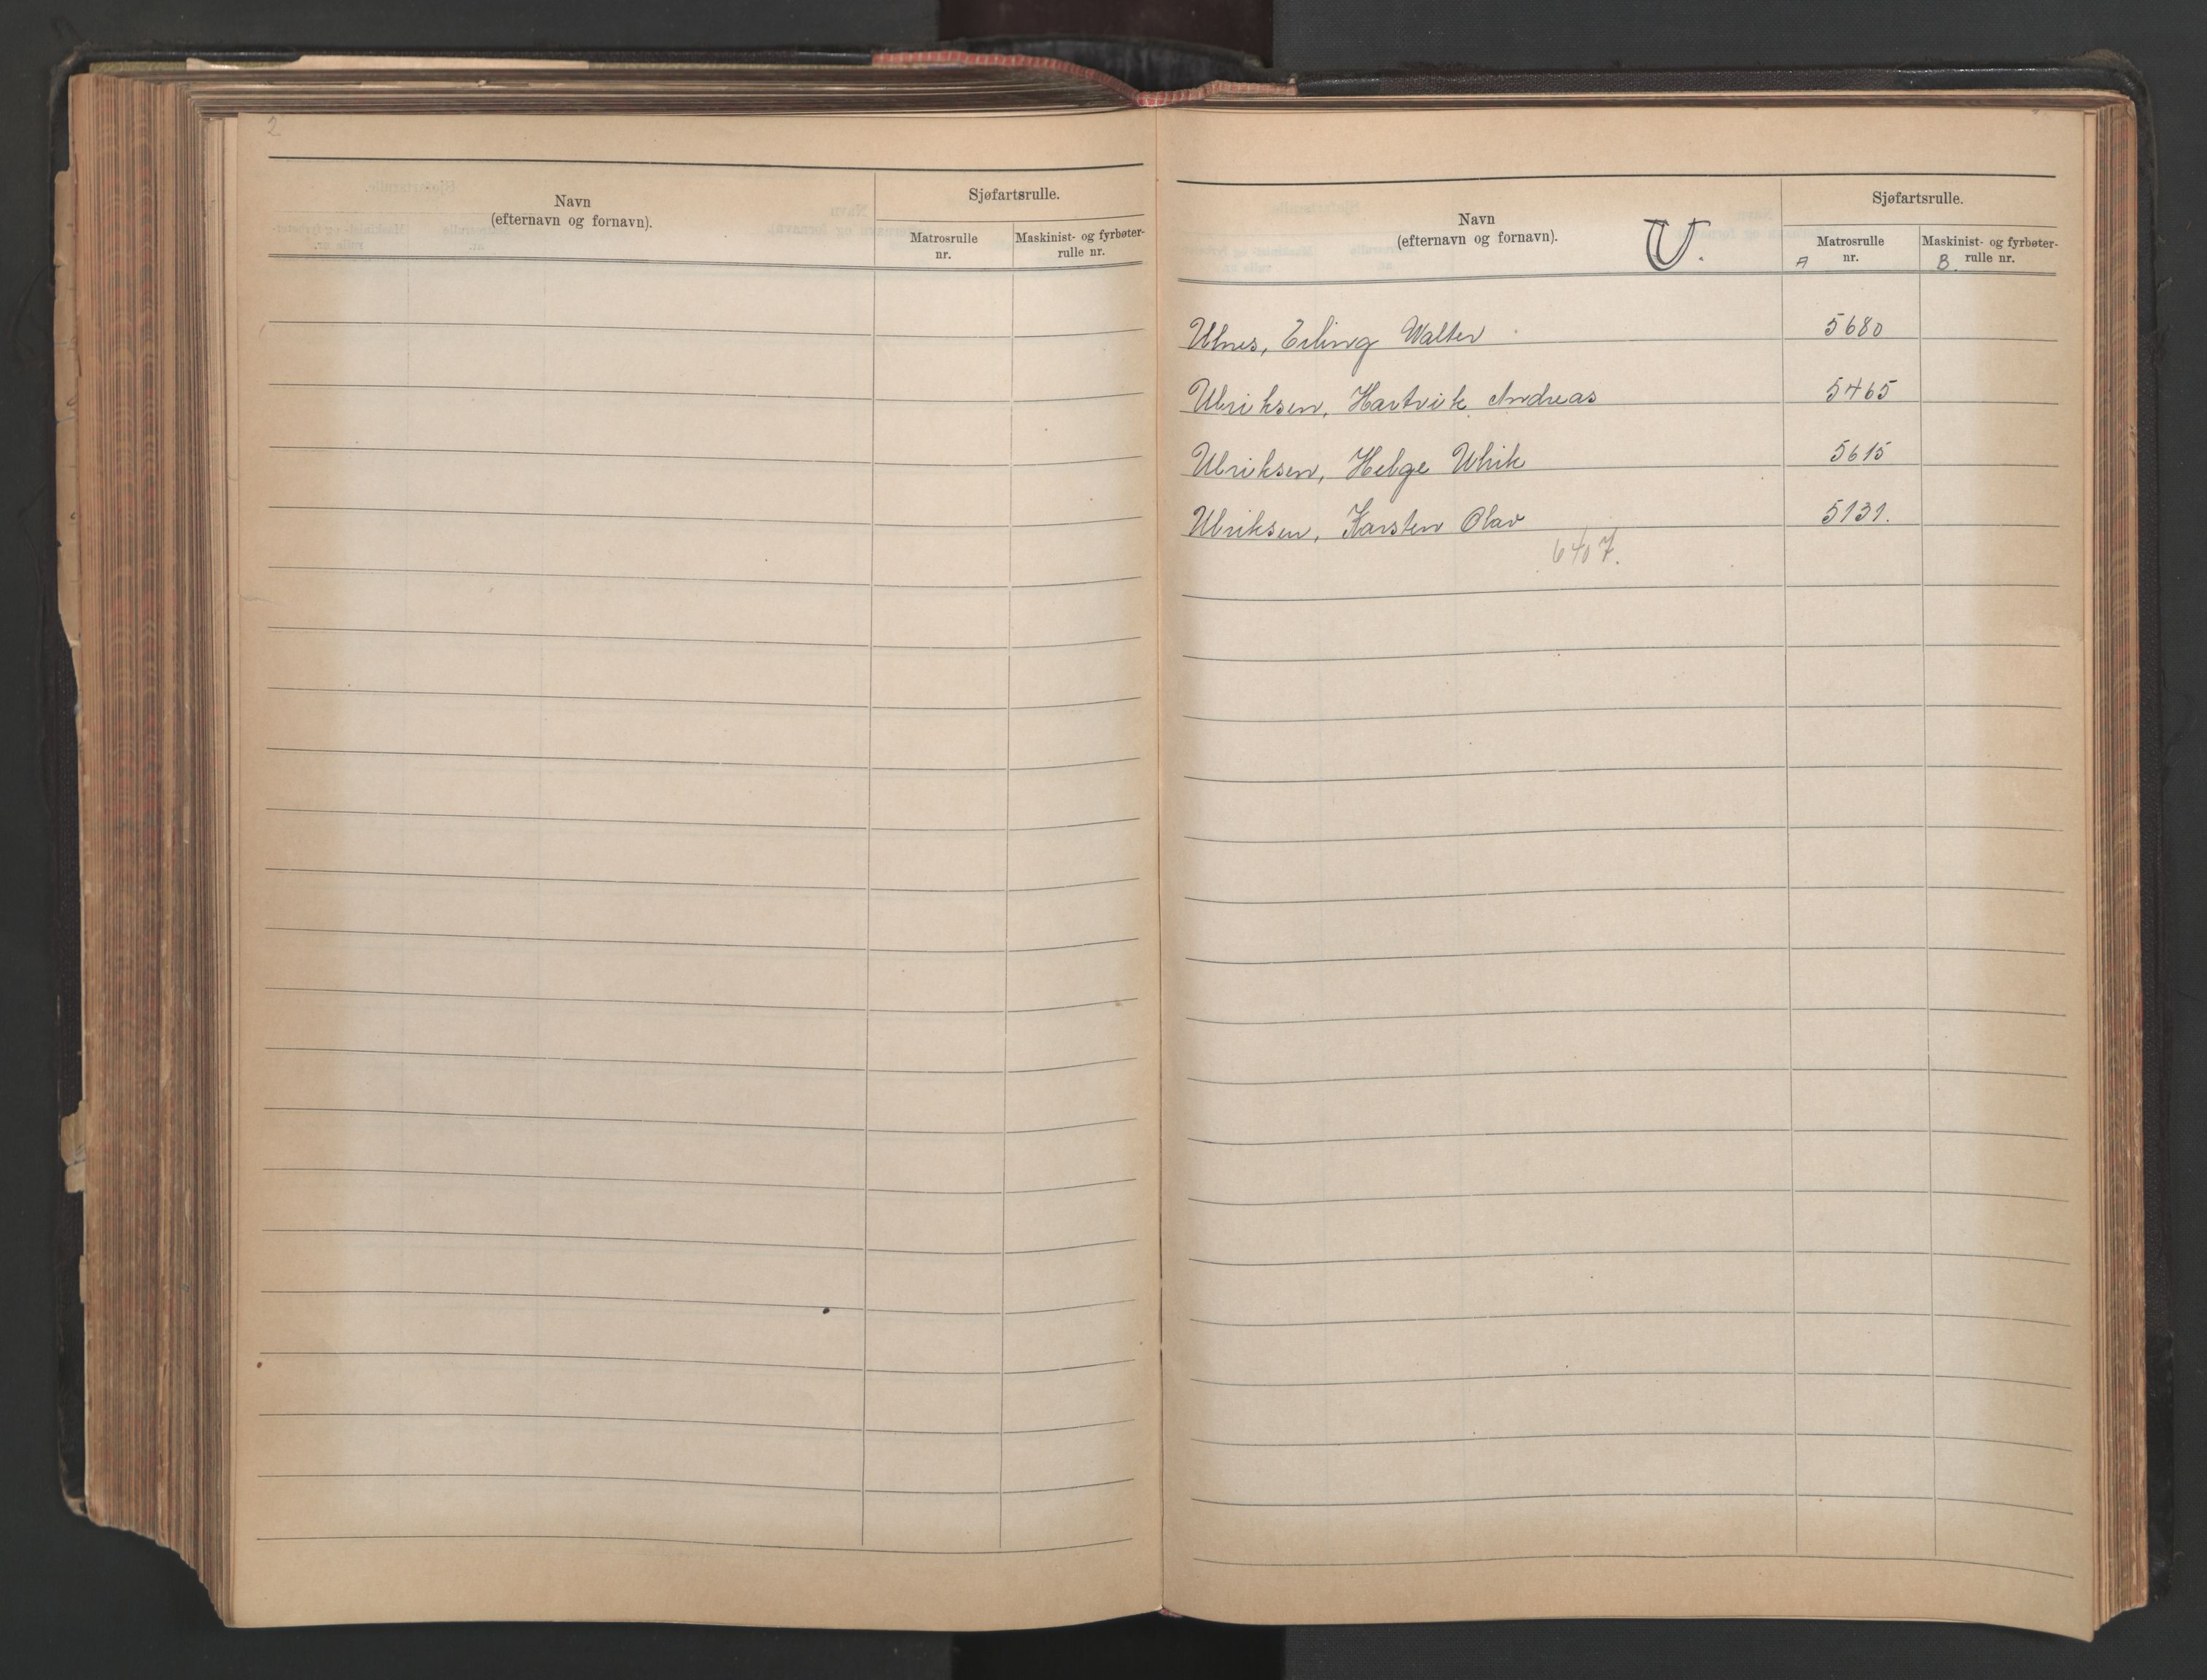 2
Navn
(efternavn og fornavn).
Sjøfartsrulle.
Matrosrulle
nr.
Maskinist- og fyrbøter-
rulle nr.
Navn
(efternavn og fornavn).
U.
Sjøfartsrulle.
Matrosrulle
A nr.
Maskinist- og fyrbøter-
B. rulle nr.
Ulnes, Erling Walter 5680
Ulriksen, Hartvik Andreas 5465
Ulriksen, Helge Ulrik 5615
Ulriksen, Karsten Olav 5131.
6407.